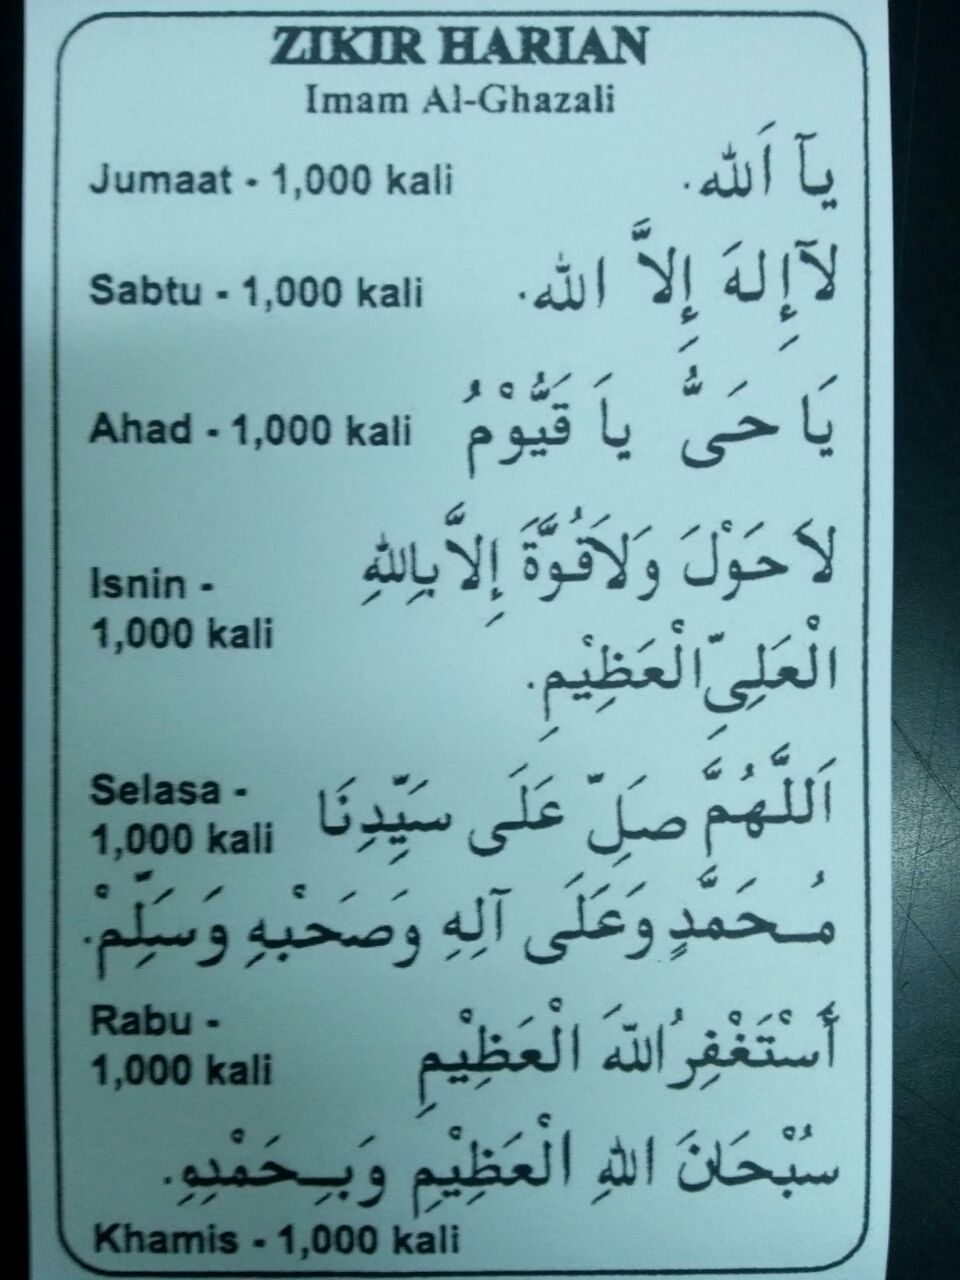 ZIKIR HARIAN
Imam Al-Ghazali
Jumaat - 1,000 kali يآ اَلله.
Sabtu - 1,000 kali لآإِلهَ إِلاَّ الله.
Ahad - 1,000 kali يَا حَىُّ ياَ قَيُّوْمُ
Isnin - لاَحَوْلَ وَلاَقُوَّةَ إِلاَّ بِاللهِ
1,000 kali الْعَلِىِّ الْعَظِيْمِ.
Selasa - اَللَّهُمَّ صَلِّ عَلَى سَيِّدِنَا
1,000 kali
مُحَمَّدٍ وَعَلَى آلِهِ وَصَحْبِهِ وَسَلِّمْ.
Rabu - أَسْتَغْفِرُاللهَ الْعَظِيْمِ
1,000 kali
سُبْحَانَ اللهِ الْعَظِيْمِ وَبِحَمْدِهِ.
Khamis - 1,000 kali